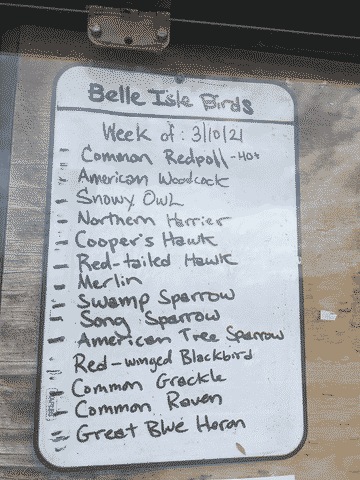 Belle Isle Birds
Week of: 3/10/21
Common Redpoll - HOT
American Woodcock
Snowy Owl
Northern Harrier
Cooper's Hawk
Red-tailed Hawk
Merlin
Swamp Sparrow
Song Sparrow
American Tree Sparrow
Red-winged Blackbird
Common Grackle
Common Raven
Great Blue Heron